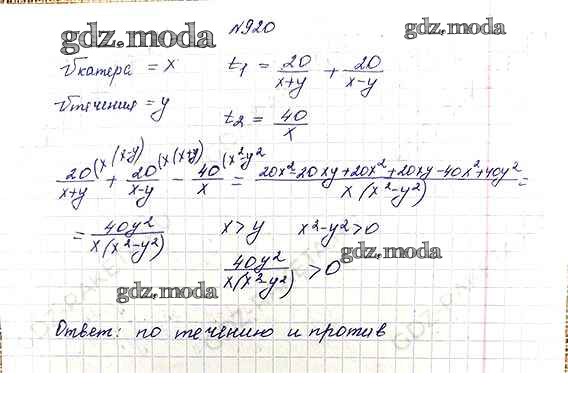 №920
gdz.moda
gdz.moda
vкатера = x t₁ = 20/(x+y) + 20/(x-y)
vтечения = y t₂ = 40/x
20/(x+y) (x(x-y) + 20/(x-y) (x(x+y) - 40/x (x²-y² = (20x²-20xy+20x²+20xy-40x²+40y²)/(x(x²-y²)) =
= 40y²/(x(x²-y²)) x>y x²-y²>0
gdz.moda
40y²/(x(x²-y²)) >0
gdz.moda
Ответ: по течению и против